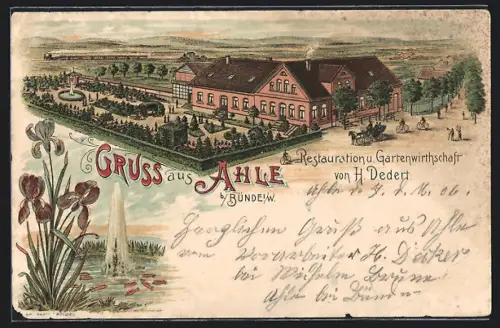 GRUSS aus AHLE
b/BÜNDE i/W.
Restauration u. Gartenwirthschaft
von H. Dedert
Ahle d. 06.
Herzlichen Gruß aus Ahle
vom Vorarbeiter H.
bei Wilhelm
Ahle bei Bünde